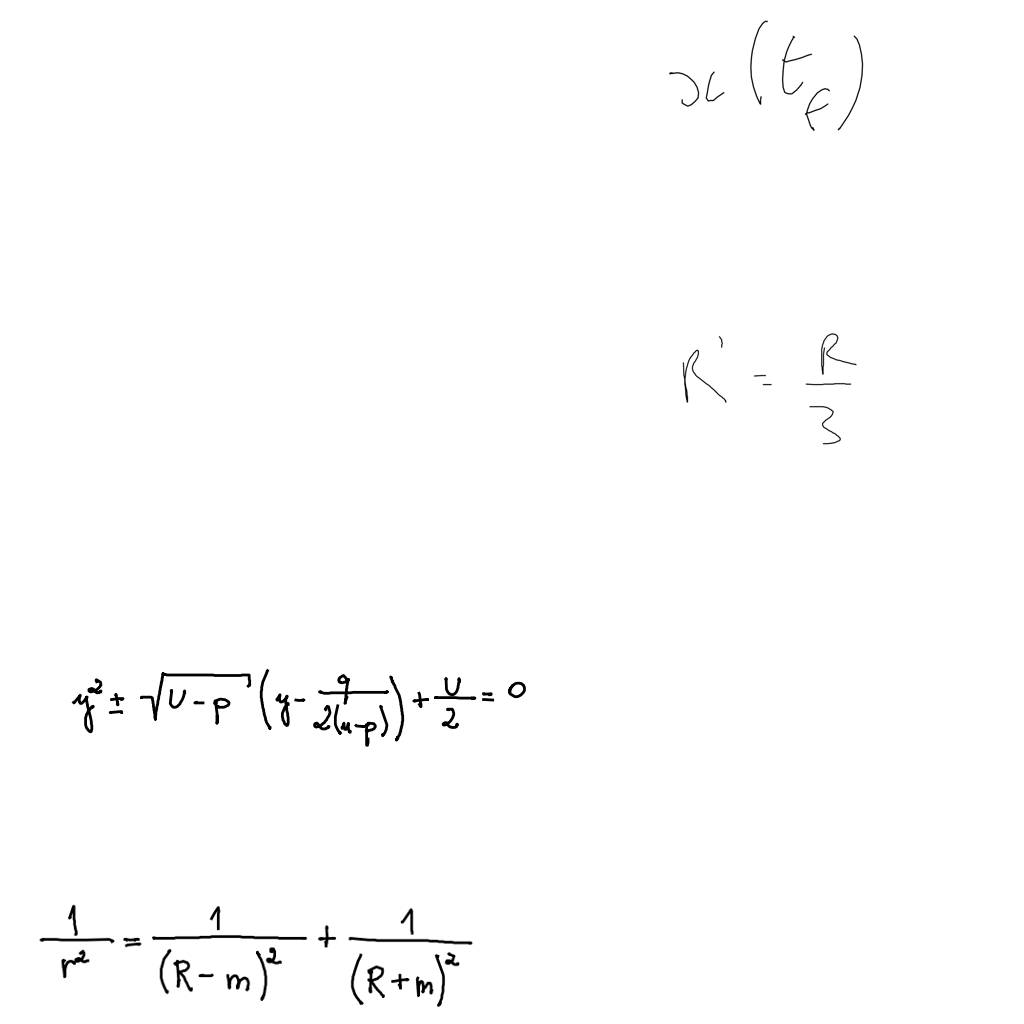 x(t_f)
R' = \frac{R}{3}
y^2 ± \sqrt{U-p} (y - \frac{q}{2(u-p)}) + \frac{U}{2} = 0
\frac{1}{r^2} = \frac{1}{(R-m)^2} + \frac{1}{(R+m)^2}